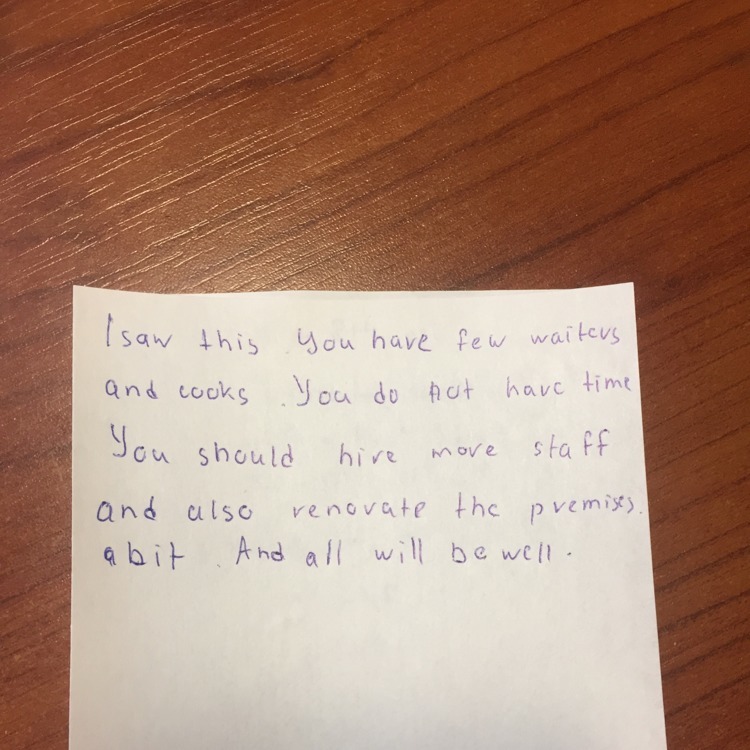 I saw this. You have few waiters
and cooks. You do not have time
You should hire more staff
and also renovate the premises.
a bit. And all will be well.